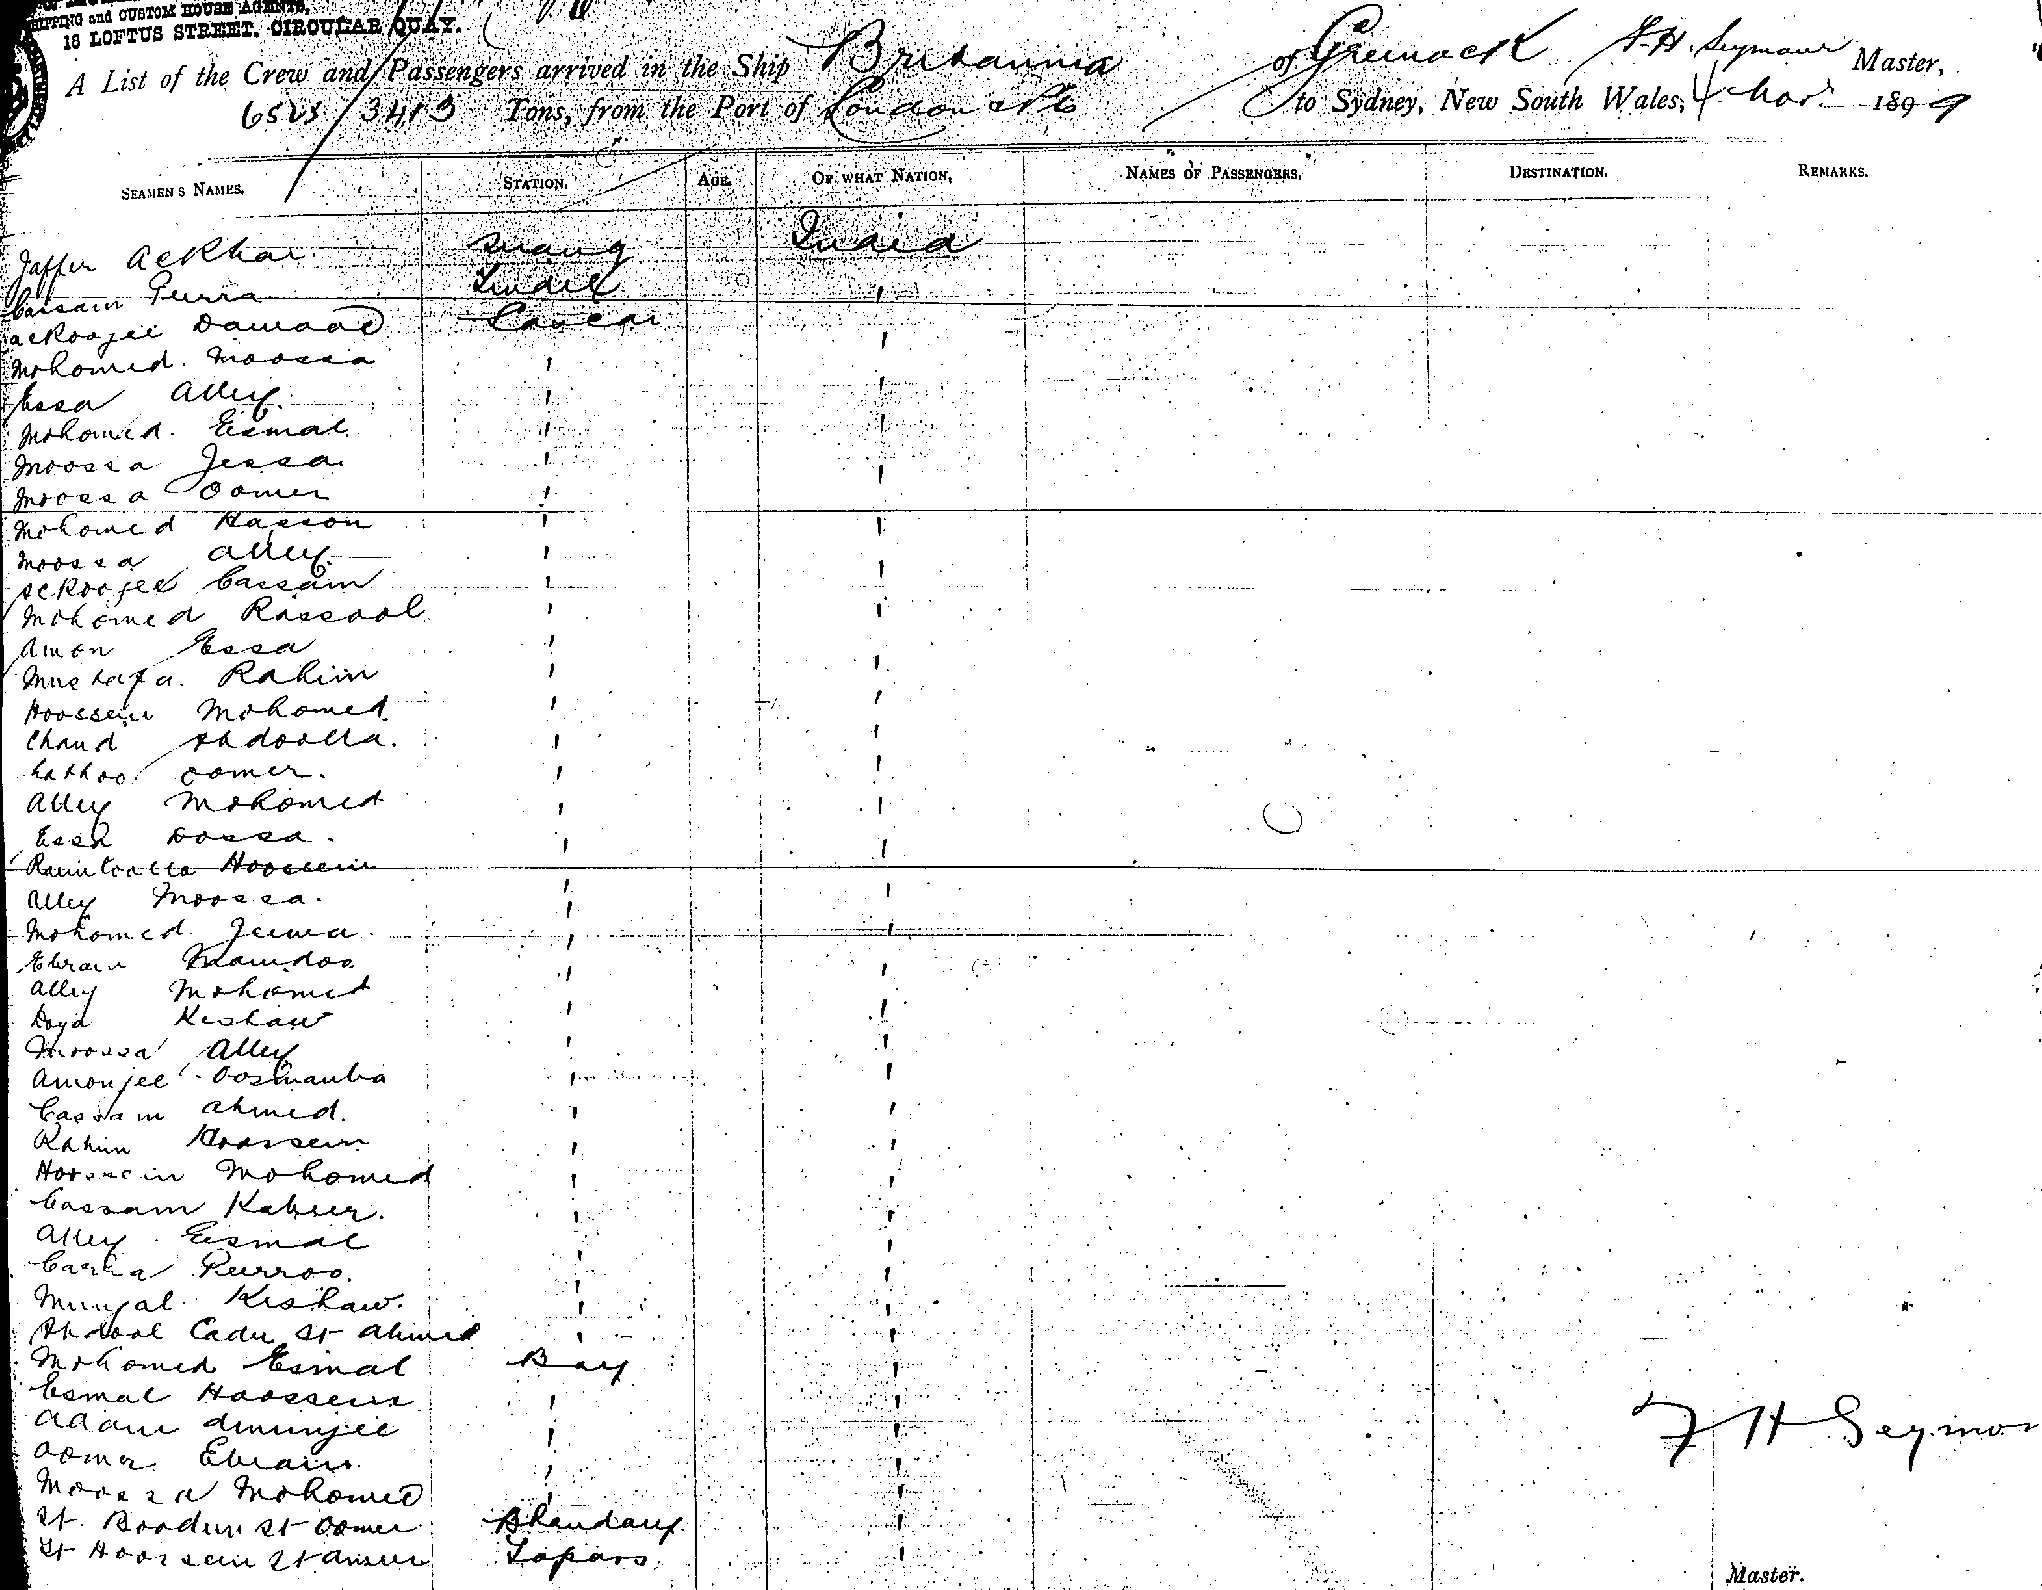 SHIPPING and CUSTOM HOUSE AGENTS,
18 LOFTUS STREET, CIRCULAR QUAY.
A List of the Crew and Passengers arrived in the Ship Britannia of Greenock F. H. Seymour Master,
6525 / 3413 Tons, from the Port of London to Sydney, New South Wales, 4 1899
SEAMEN'S NAMES. STATION. AGE. OF WHAT NATION. NAMES OF PASSENGERS. DESTINATION. REMARKS.
Jaffer Ackhar Serang India
Cassam Purra Tindal "
ackoojee Dawood Lascar "
Mohomed Moossa " "
Essa Alley " "
Mohomed Esmal " "
Moossa Jessa " "
Moossa Oomer " "
Mohomed Hasson " "
Moossa Alley " "
ackoojee Cassam " "
Mohomed Rassool " "
Amon Essa " "
Mustafa Rahim " "
Hoossein Mohomed " "
Chand Abdoolla " "
oomer " "
Alley Mohomed " "
Essa Dossa " "
Hoossein " "
Alley Moossa " "
Mohomed Jeewa " "
Ebram Mamdoo " "
Alley Mohomed " "
Daya Keshaw " "
Moossa Alley " "
Amonjee " "
Cassam Ahmed " "
Rahim Hoossein " "
Hoossein Mohomed " "
Cassam Kabeer " "
Alley Esmal " "
Purroo " "
Mungal Keshaw " "
Abdool Cader St Ahmed " "
Mohomed Esmal Boy "
Esmal Hoossein " "
Adam Amunjee " "
Oomer Ebram " "
Moossa Mohomed " "
St Boodun St Oomer Bhandary "
St Hoossein St Topass "
F H Seymour
Master.